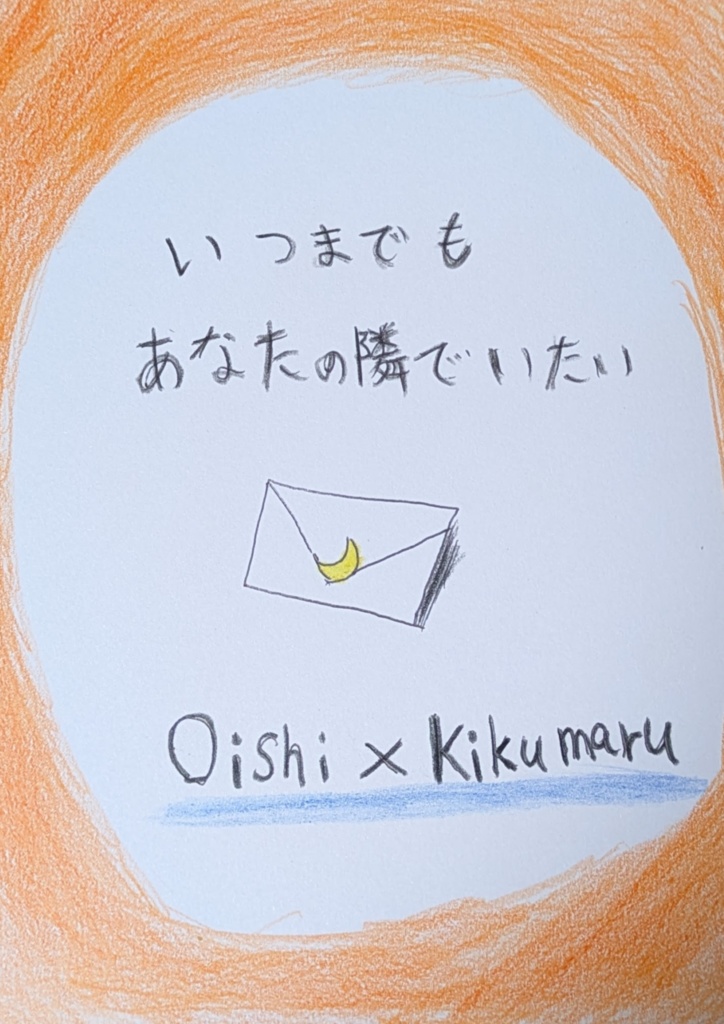 いつまでも
あなたの隣でいたい
Oishi × Kikumaru